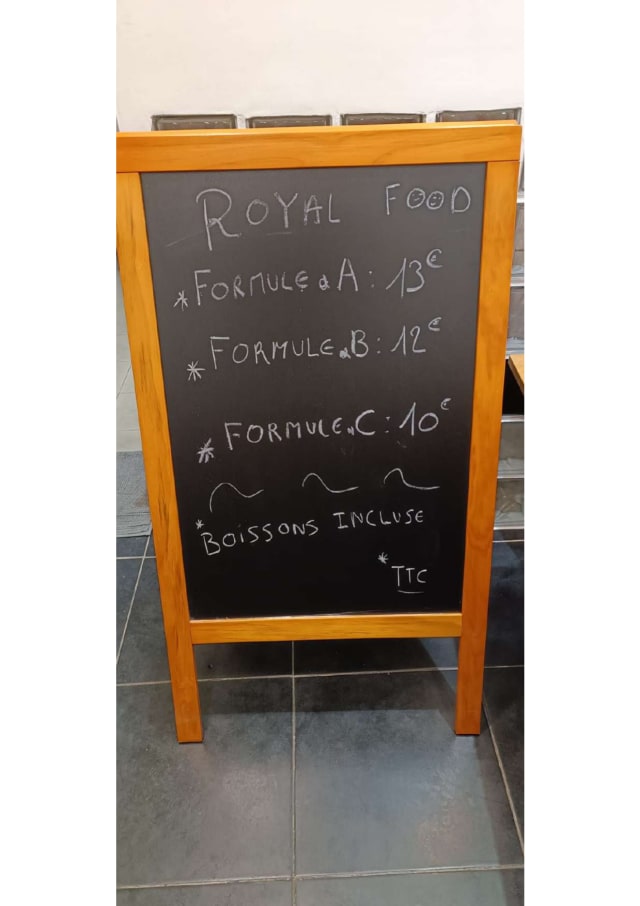 ROYAL FOOD
*FORMULE A : 13€
*FORMULE B : 12€
*FORMULE C : 10€
*BOISSONS INCLUSE
*TTC